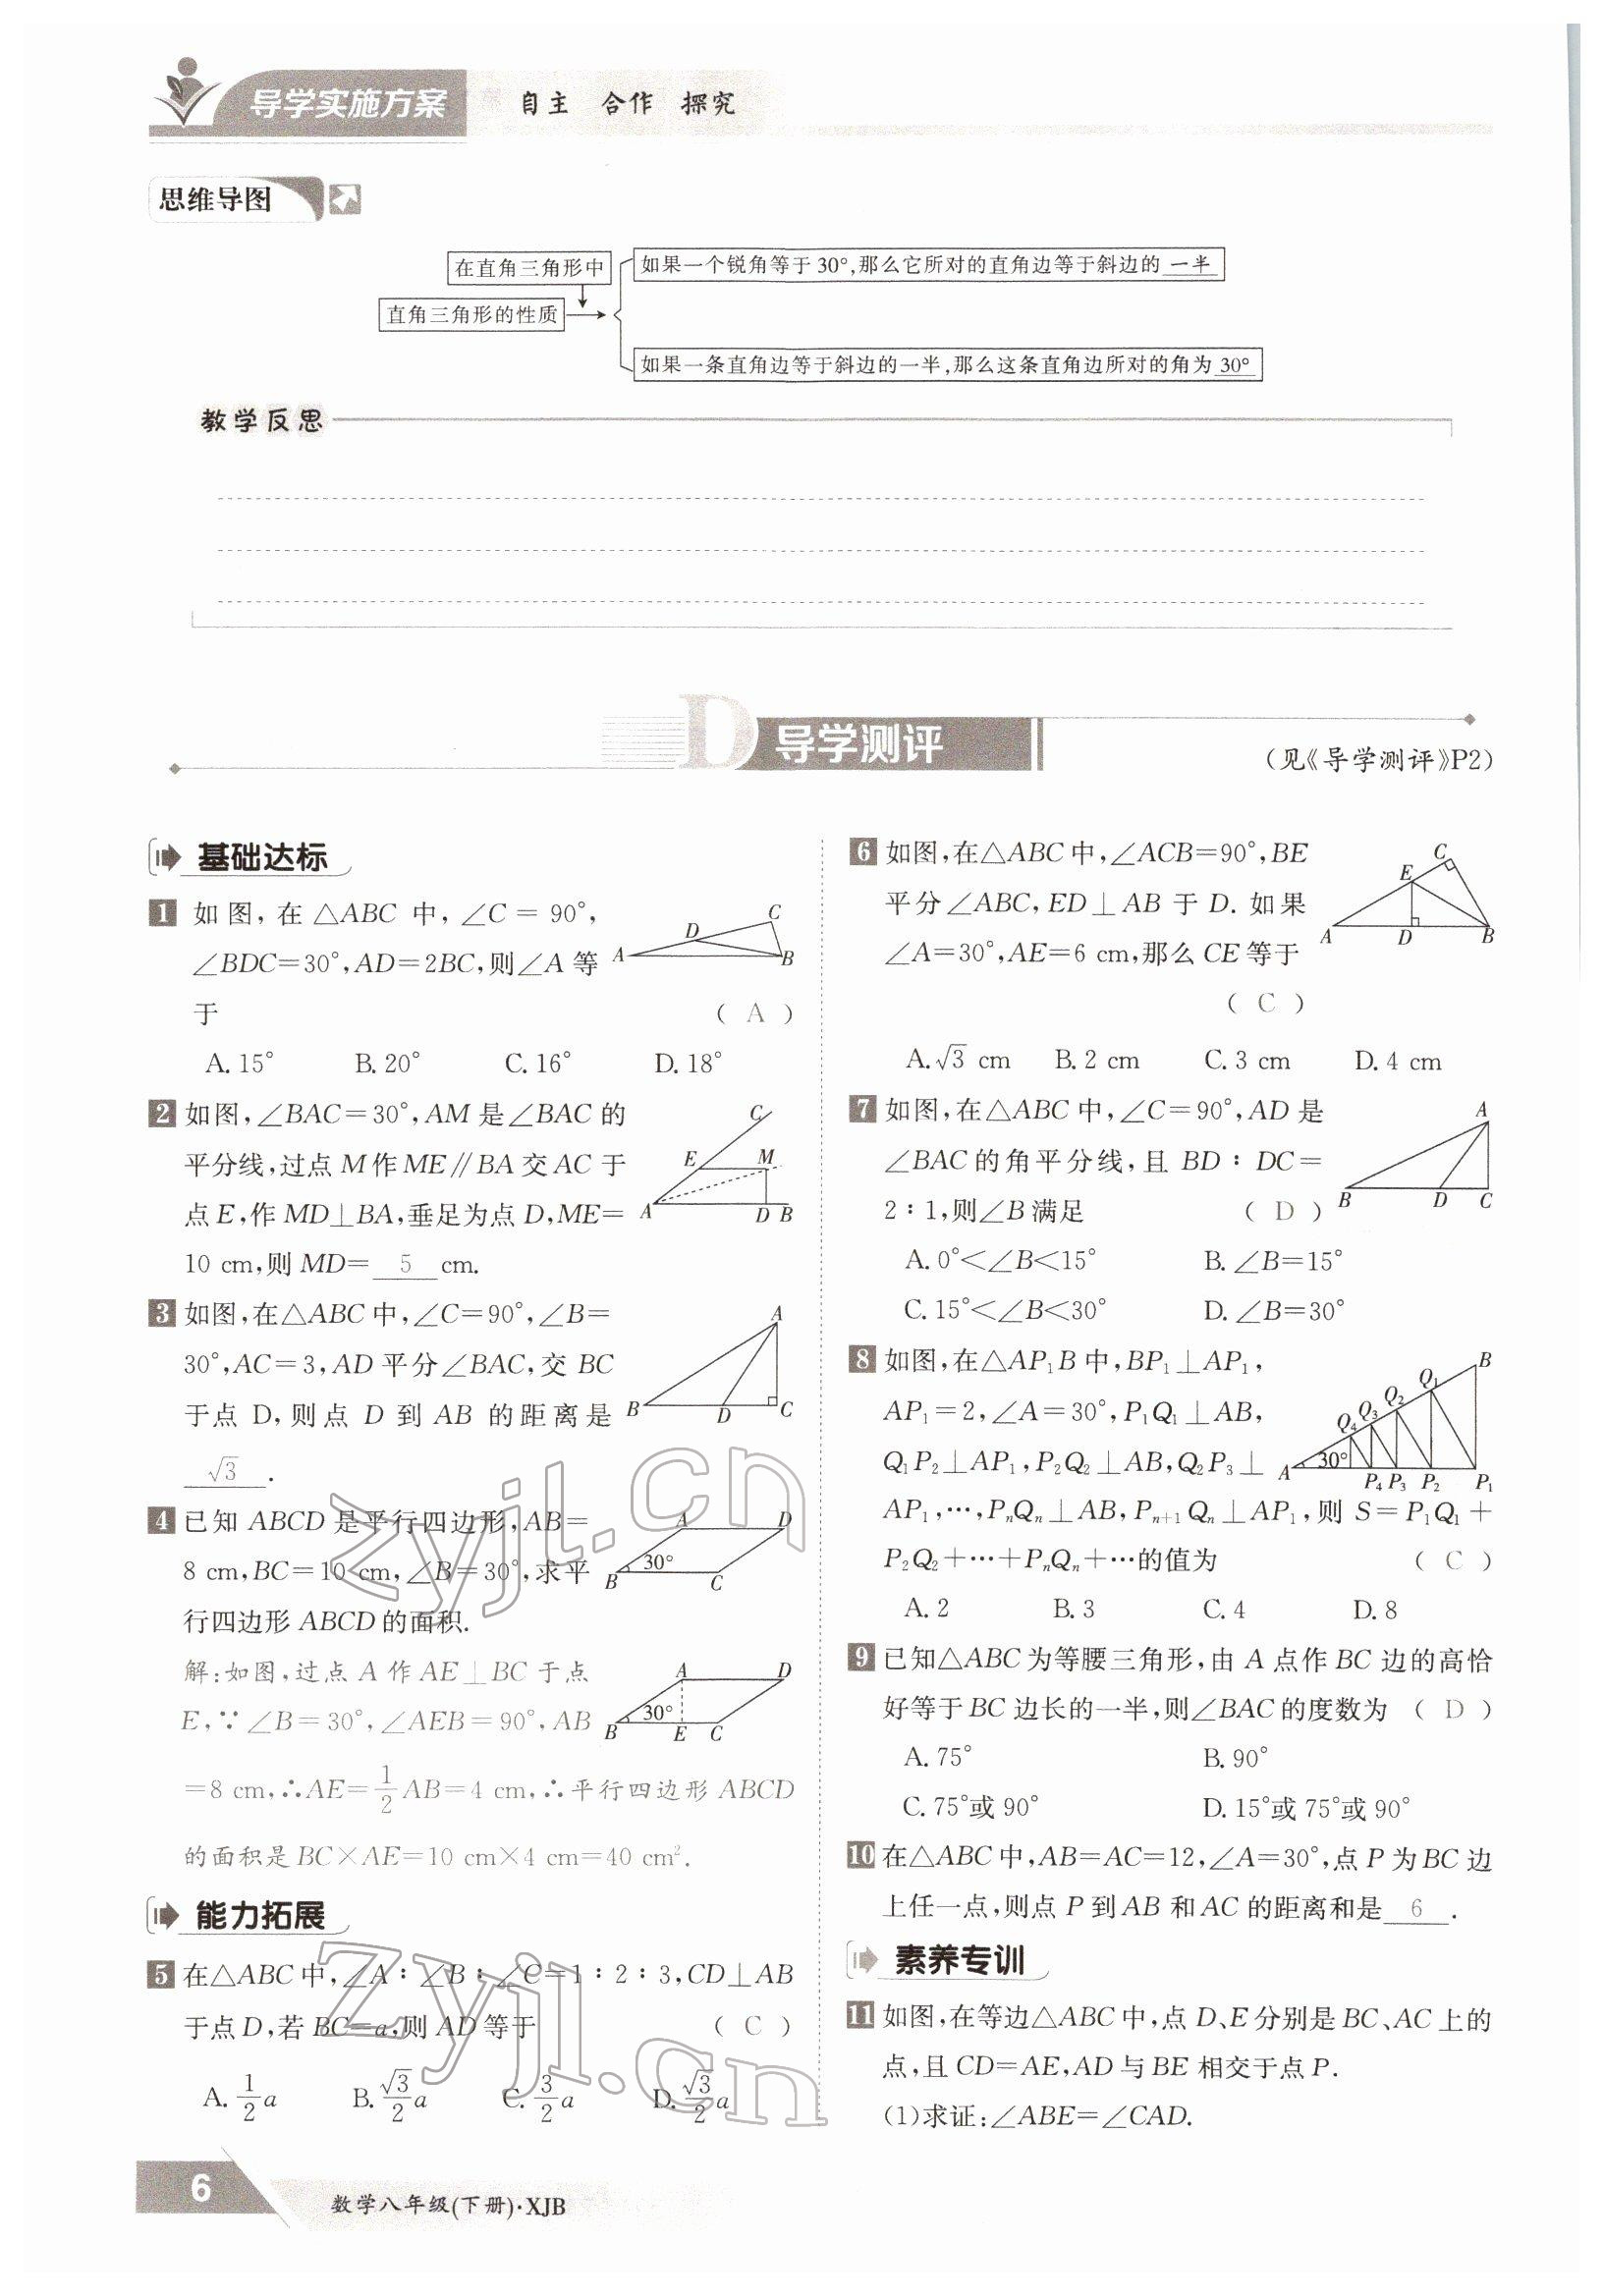 导学实施方案 自主 合作 探究
思维导图
在直角三角形中
直角三角形的性质
如果一个锐角等于30°,那么它所对的直角边等于斜边的 一半
如果一条直角边等于斜边的一半,那么这条直角边所对的角为 30°
教学反思
D 导学测评
(见《导学测评》P2)
基础达标
1 如图,在△ABC中,∠C=90°,
∠BDC=30°,AD=2BC,则∠A等
于 ( A )
A B C D
A.15° B.20° C.16° D.18°
2 如图,∠BAC=30°,AM是∠BAC的
平分线,过点M作ME∥BA交AC于
点E,作MD⊥BA,垂足为点D,ME=
10 cm,则MD= 5 cm.
A B C D E M
3 如图,在△ABC中,∠C=90°,∠B=
30°,AC=3,AD平分∠BAC,交BC
于点D,则点D到AB的距离是
√3 .
A B C D
4 已知ABCD是平行四边形,AB=
8 cm,BC=10 cm,∠B=30°,求平
行四边形ABCD的面积.
A B C D 30°
解:如图,过点A作AE⊥BC于点
E,∵∠B=30°,∠AEB=90°,AB
=8 cm,∴AE=1/2AB=4 cm,∴平行四边形ABCD
的面积是BC×AE=10 cm×4 cm=40 cm².
A B C D E 30°
能力拓展
5 在△ABC中,∠A∶∠B∶∠C=1∶2∶3,CD⊥AB
于点D,若BC=a,则AD等于 ( C )
A.1/2a B.√3/2a C.3/2a D.√3/2a
6 如图,在△ABC中,∠ACB=90°,BE
平分∠ABC,ED⊥AB于D.如果
∠A=30°,AE=6 cm,那么CE等于
( C )
A B C D E
A.√3 cm B.2 cm C.3 cm D.4 cm
7 如图,在△ABC中,∠C=90°,AD是
∠BAC的角平分线,且BD∶DC=
2∶1,则∠B满足 ( D )
A B C D
A.0°<∠B<15° B.∠B=15°
C.15°<∠B<30° D.∠B=30°
8 如图,在△AP₁B中,BP₁⊥AP₁,
AP₁=2,∠A=30°,P₁Q₁⊥AB,
Q₁P₂⊥AP₁,P₂Q₂⊥AB,Q₂P₃⊥
AP₁,…,PₙQₙ⊥AB,Pₙ₊₁Qₙ⊥AP₁,则S=P₁Q₁+
P₂Q₂+…+PₙQₙ+…的值为 ( C )
A B 30° Q₄ Q₃ Q₂ Q₁ P₄ P₃ P₂ P₁
A.2 B.3 C.4 D.8
9 已知△ABC为等腰三角形,由A点作BC边的高恰
好等于BC边长的一半,则∠BAC的度数为 ( D )
A.75° B.90°
C.75°或90° D.15°或75°或90°
10 在△ABC中,AB=AC=12,∠A=30°,点P为BC边
上任一点,则点P到AB和AC的距离和是 6 .
素养专训
11 如图,在等边△ABC中,点D、E分别是BC、AC上的
点,且CD=AE,AD与BE相交于点P.
(1)求证:∠ABE=∠CAD.
6 数学八年级(下册)·XJB
zyjl.cn
zyjl.cn